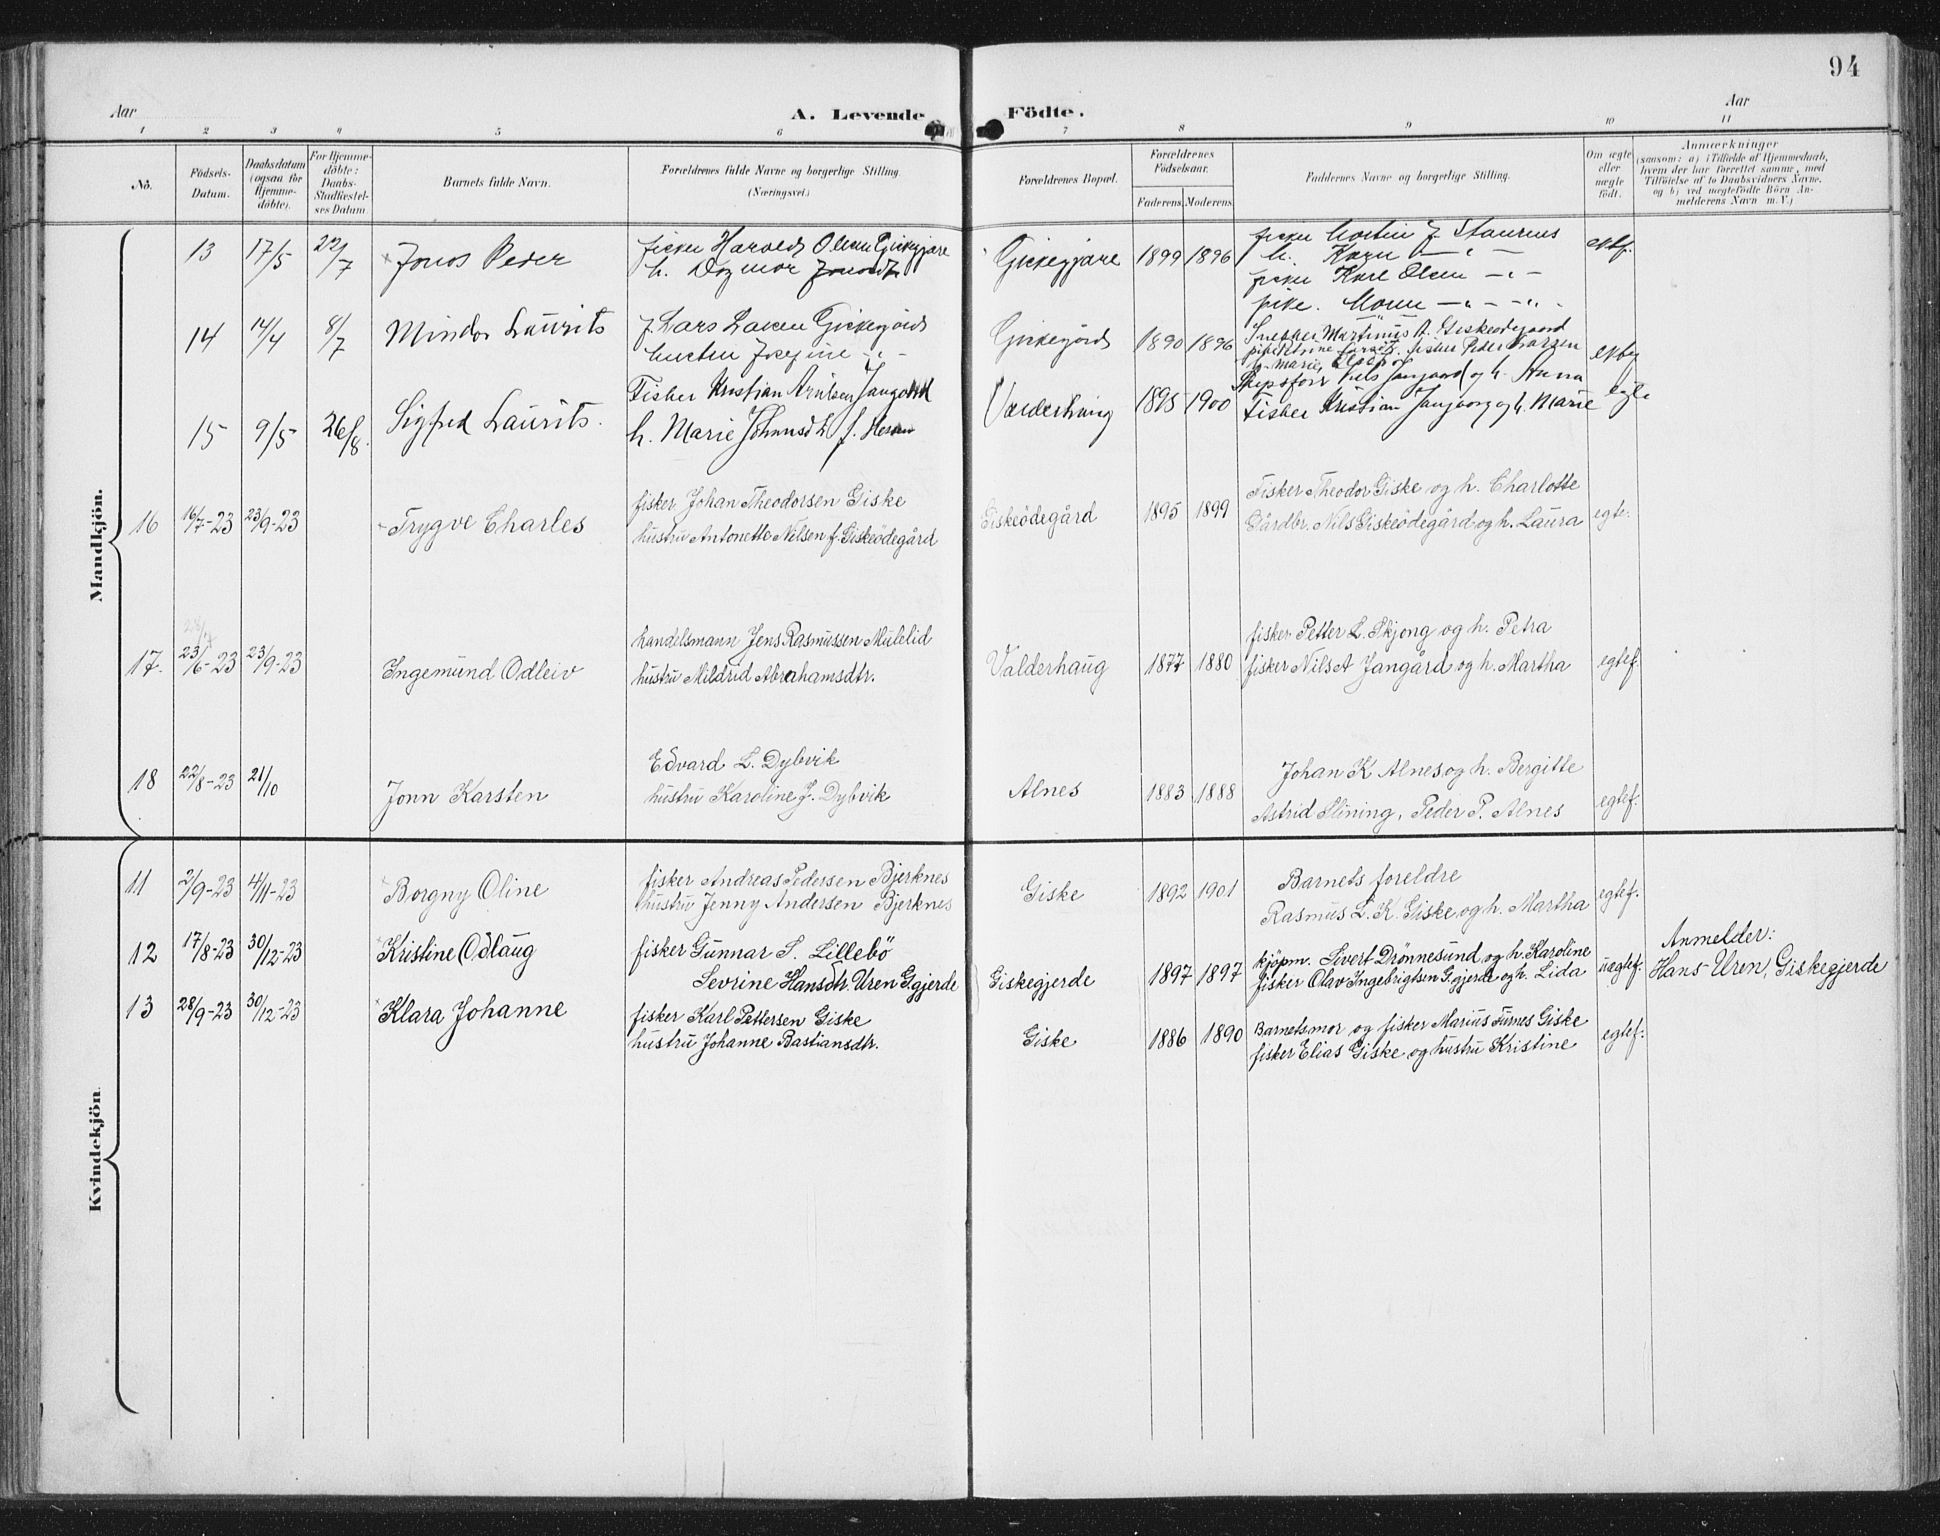 94
Aar
A. Levende
Födte.
Aar
1 2 3 4 5 6 7 8 9 10 11
No.
Födsels-
Datum.
Daabsdatum
(ogsaa for
Hjemme-
döbte).
For Hjemme-
döbte:
Daabs-
Stadfæstel-
ses Datum
Barnets fulde Navn.
Forældrenes fulde Navne og borgerlige Stilling.
(Næringsvei.)
Forældrenes Bopæl.
Forældrenes
Födselsaar.
Faderens. Moderens.
Faddernes Navne og borgerlige Stilling.
Om ægte
eller
uægte
födt.
Anmærkninger
(saasom: a) i Tilfælde af Hjemmedaab,
hvem der har forrettet samme, med
Tilföielse af to Daabsvidners Navne,
og b) ved uægtefödte Börn An-
melderens Navn m. V.)
Mandkjön.
13 17/5 22/7 Jonos Peder
fisker Harold Olsen Giskegjære
h. Dagmor
Giskegjære 1899 1896
fisker Martin J Staurnes
h. Karn — " —
fisker Karl Olsen — " —
pike.
14 14/4 8/7 Mindor Laurits
f. Lars Larsen
hustru Josefine — " —
1890 1896
Snekker Martinus A. Giskeødegaard
fisker Peder Larsen
15 9/5 26/8. Sigfred Laurits.
Fisker Kristian Arntsen
h. Marie
Valderhaug 1895 1900
h. Anna
Fisker Kristian Jangaard og h. Marie
egte
16 16/7-23 23/9-23 Trygve Charles
fisker Johan Theodorsen Giske
hustru Antonette Nilsen f. Giskeödegård
Giskeödegård 1895 1899
Fisker Theodor Giske og h. Charlotte
Gårdbr. Nils Giskeödegård og h. Laura
egte.
17. 23/6-23 23/9-23 Ingemund Odleiv
handelsmann Jens Rasmussen Mulelid
hustru Mildrid Abrahamsdtr.
Valderhaug 1877 1880
fisker Petter L. Skjong og h. Petra
fisker Nils A Jangård og h. Martha
egtef.
18 22/8-23 21/10 Jonn Karsten
Edvard L. Dybvik
hustru Karoline J. Dybvik
Alnes 1883 1888
Johan K Alnes og h. Bergitte
Astrid Slining, Peder P. Alnes
egtef.
Kvindekjön
11 2/9-23 4/11-23 Borgny Oline
fisker Andreas Pedersen Bjerknes
hustru Jenny Andersen Bjerknes
Giske 1892 1901
Barnets foreldre
Rasmus L. K. Giske og h. Martha
egtef.
12 17/8-23 30/12-23 Kristine Odlaug
fisker Gunnar S. Lillebö
Sevrine Hansdtr. Uren G.gjerde
Giskegjerde 1897 1897
kjöpm. Sivert Drönnesund og h. Karoline
fisker Olav Ingebrigtsen G.gjerde og h. Lida
uegtef.
Anmelder:
Hans Uren, Giskegjerde
13 28/9-23 30/12-23 Klara Johanne
fisker Karl Pettersen Giske
hustru Johanne Bastiansdtr.
Giske 1886 1890
Barnetsmor og fisker Marius Furnes Giske
fisker Elias Giske og hustru Kristine
egtef.